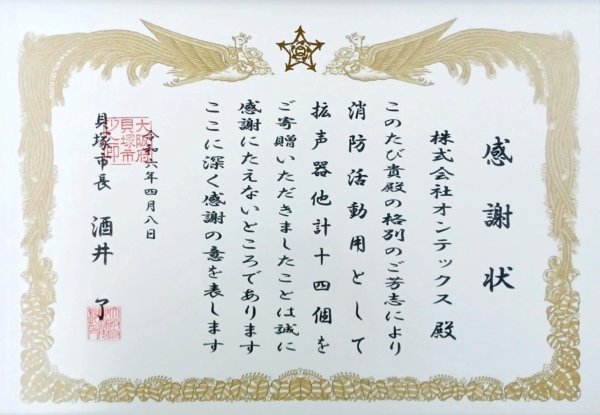 感謝状
株式会社オンテックス 殿
このたび貴殿の格別のご芳志により
消防活動用として
拡声器他計十四個を
ご寄贈いただきましたことは誠に
感謝にたえないところであります
ここに深く感謝の意を表します
令和六年四月八日
貝塚市長 酒井 了
大阪府
貝塚市